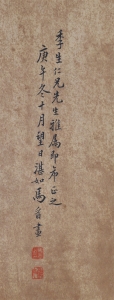 季生仁兄先生雅属即希正之
庚午冬十月望日湛如馬晉畫